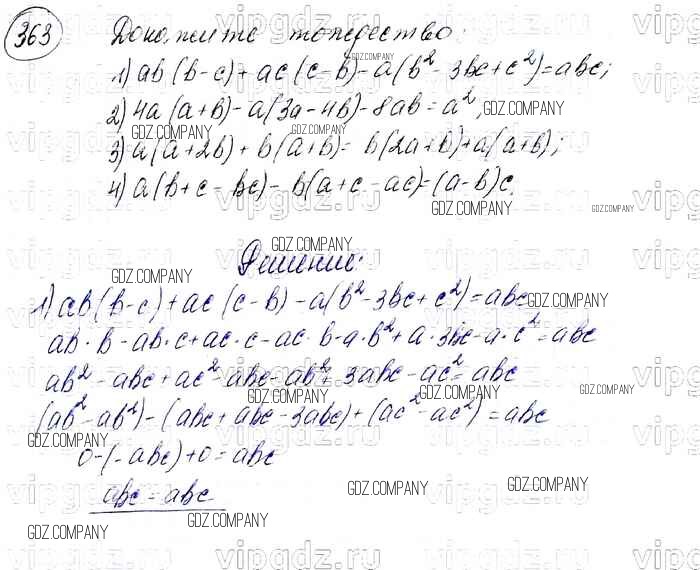 363 Докажите тождество:
1) ab(b-c)+ac(c-b)-a(b²-3bc+c²)=abc;
2) 4a(a+b)-a(3a-4b)-8ab=a²;
3) a(a+2b)+b(a+b)=b(2a+b)+a(a+b);
4) a(b+c-bc)-b(a+c-ac)=(a-b)c.
Решение:
1) ab(b-c)+ac(c-b)-a(b²-3bc+c²)=abc
ab·b-ab·c+ac·c-ac·b-a·b²+a·3bc-a·c²=abc
ab²-abc+ac²-abc-ab²+3abc-ac²=abc
(ab²-ab²)-(abc+abc-3abc)+(ac²-ac²)=abc
0-(-abc)+0=abc
abc=abc